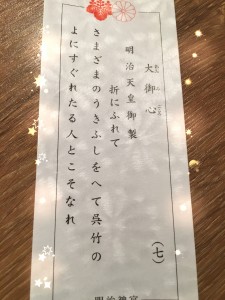 大御心
おおみごころ
明治天皇御製
折にふれて
さまざまのうきふしをへて呉竹の
よにすぐれたる人とこそなれ
(七)
明治神宮